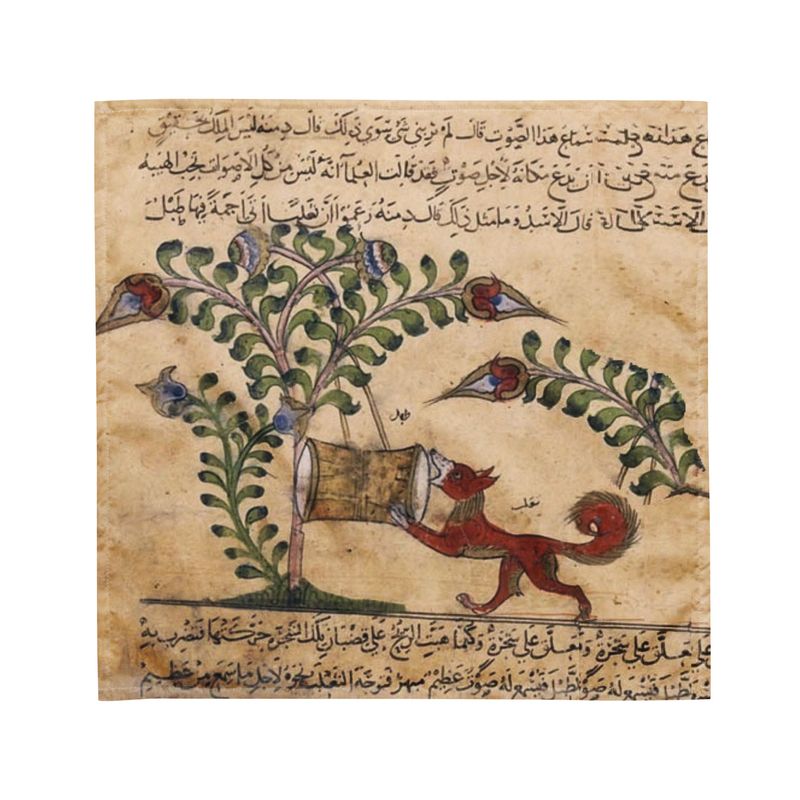 هذا الصوت قال لم تربني شئ سوى ذلك قال دمنه ليس الملك بحقيق
ان يدع مكانه لاجل صوت فقد قالت العلما انه ليس من كل الاصوات تجب الهيبه
قال الاسد وما مثل ذلك قال دمنه زعموا ان ثعلبا اتى اجمة فيها طبل
طبل
ثعلب
معلق على شجرة وكلما هبت الريح على قضبان تلك الشجرة حركتها فتضرب به
الطبل فيسمع له صوت عظيم فتوجه الثعلب نحوه لاجل ما سمع من عظيم